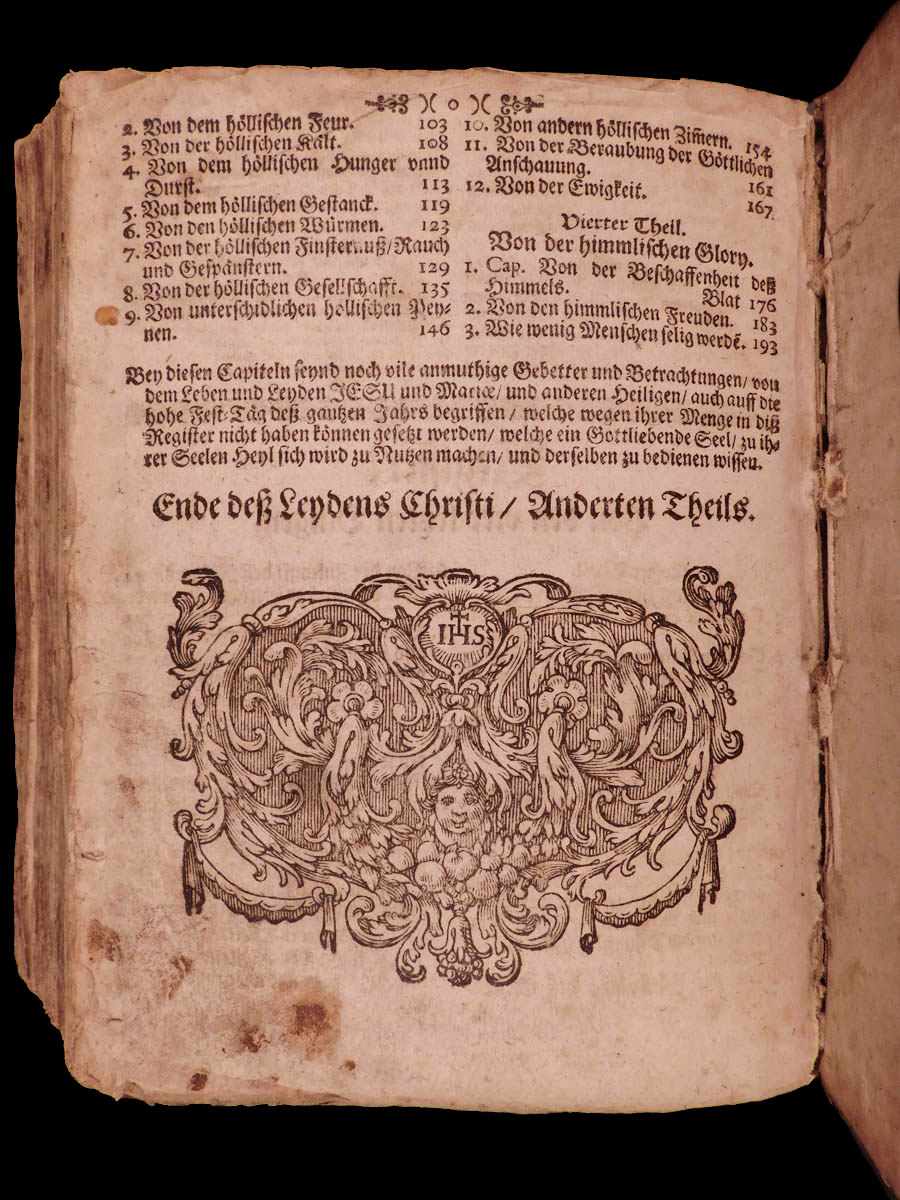 )( o )(
2. Von dem höllischen Feur. 103
3. Von der höllischen Kält. 108
4. Von dem höllischen Hunger vnnd
Durst. 113
5. Von dem höllischen Gestanck. 119
6. Von den höllischen Würmen. 123
7. Von der höllischen Finsternuß/Rauch
und Gespänstern. 129
8. Von der höllischen Gesellschafft. 135
9. Von unterschidlichen höllischen Pey-
nen. 146
10. Von andern höllischen Zim̃ern. 154
11. Von der Beraubung der Göttlichen
Anschauung. 161
12. Von der Ewigkeit. 167
Vierter Theil.
Von der himmlischen Glory.
1. Cap. Von der Beschaffenheit deß
Himmels. Blat 176
2. Von den himmlischen Freuden. 183
3. Wie wenig Menschen selig werdẽ. 193
Bey diesen Capiteln seynd noch vile anmuthige Gebetter und Betrachtungen/ von
dem Leben und Leyden JESU und Mariæ/ und anderen Heiligen/ auch auff die
hohe Fest-Täg deß gantzen Jahrs begriffen/ welche wegen ihrer Menge in diß
Register nicht haben können gesetzt werden/ welche ein Gottliebende Seel/ zu ih-
rer Seelen Heyl sich wird zu Nutzen machen/ und derselben zu bedienen wissen.
Ende deß Leydens Christi/ Anderten Theils.
IHS